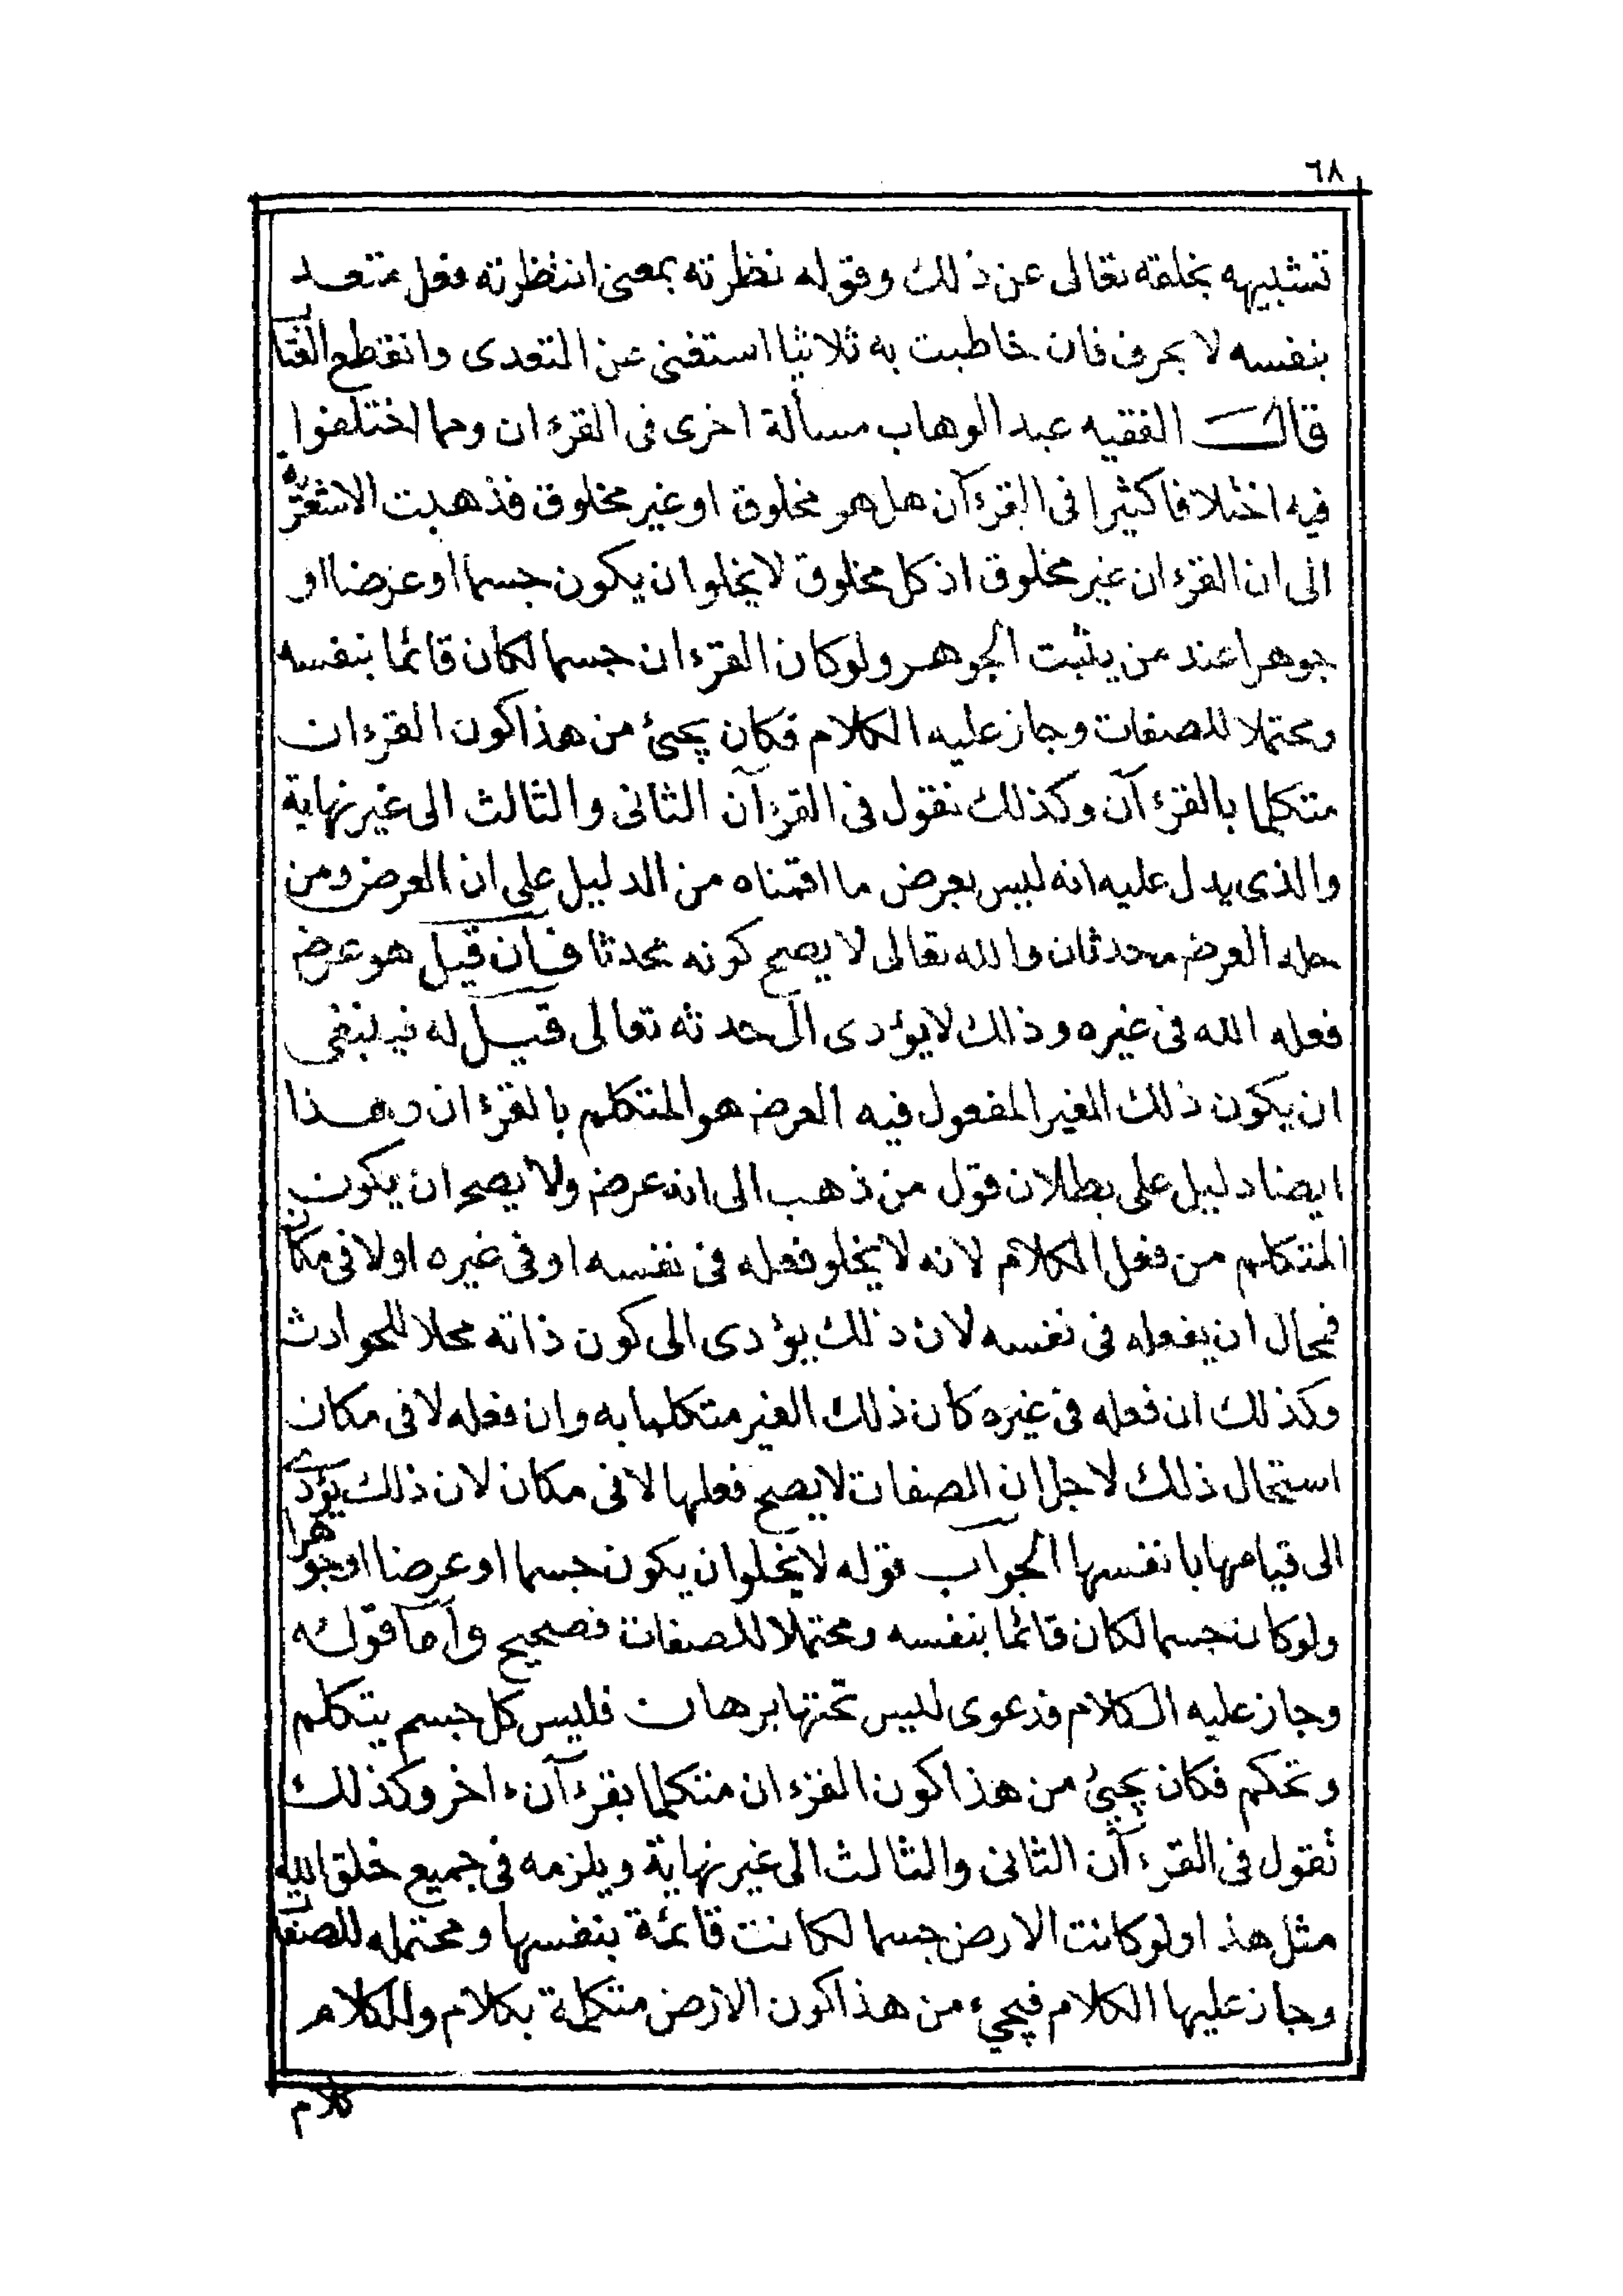 ٦٨
تشبيهه بخلقه تعالى عن ذلك وقوله نظرته بمعنى انتظرته فعل متعد
بنفسه لا بحرف فان خاطبت به ثلاثيا استغنى عن التعدى وانقطع الفتا
قال الفقيه عبد الوهاب مسألة اخرى فى القرءان ومما اختلفوا
فيه اختلافا كثيرا فى القرءآن هل هو مخلوق او غير مخلوق فذهبت الاشعرية
الى ان القرءان غير مخلوق اذ كل مخلوق لا يخلو ان يكون جسما او عرضا او
جوهرا عند من يثبت الجوهر ولو كان القرءان جسما لكان قائما بنفسه
ومحتملا للصفات وجاز عليه الكلام فكان يجئ من هذا كون القرءان
متكلما بالقرءآن وكذلك نقول فى القرءآن الثانى والثالث الى غير نهاية
والذى يدل عليه انه ليس بعرض ما اقمناه من الدليل على ان العرض ومن
حله العرض محدثان والله تعالى لا يصح كونه محدثا فان قيل هو عرض
فعله الله فى غيره وذلك لا يؤدى الى حدثه تعالى قيل له فينبغى
ان يكون ذلك الغير المفعول فيه العرض هو المتكلم بالقرءان وهذا
ايضا دليل على بطلان قول من ذهب الى انه عرض ولا يصح ان يكون
المتكلم من فعل الكلام لانه لا يخلو فعله فى نفسه او فى غيره او لا فى مكان
فمحال ان يفعله فى نفسه لان ذلك يؤدى الى كون ذاته محلا للحوادث
وكذلك ان فعله فى غيره كان ذلك الغير متكلما به وان فعله لا فى مكان
استحال ذلك لاجل ان الصفات لا يصح فعلها لا فى مكان لان ذلك يؤدى
الى قيامها بانفسها الجواب قوله لا يخلو ان يكون جسما او عرضا او جوهرا
ولو كان جسما لكان قائما بنفسه ومحتملا للصفات فصحيح وأما قوله
وجاز عليه الكلام فدعوى ليس تحتها برهان فليس كل جسم يتكلم
وتحكم فكان يجئ من هذا كون القرءان متكلما بقرءآن ءاخر وكذلك
نقول فى القرءآن الثانى والثالث الى غير نهاية ويلزمه فى جميع خلق الله
مثل هذا ولو كانت الارض جسما لكانت قائمة بنفسها ومحتمله للصفات
وجاز عليها الكلام فيجيء من هذا كون الارض متكلمة بكلام وللكلام
كلام